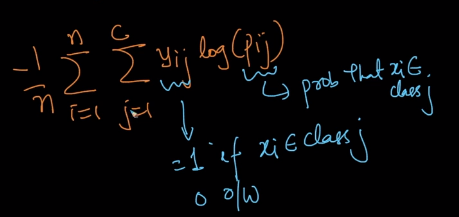 -1/n Σ_{i=1}^{n} Σ_{j=1}^{c} y_{ij} log(p_{ij})
→ prob that x_i ∈ class j
= 1 if x_i ∈ class j
0 o/w